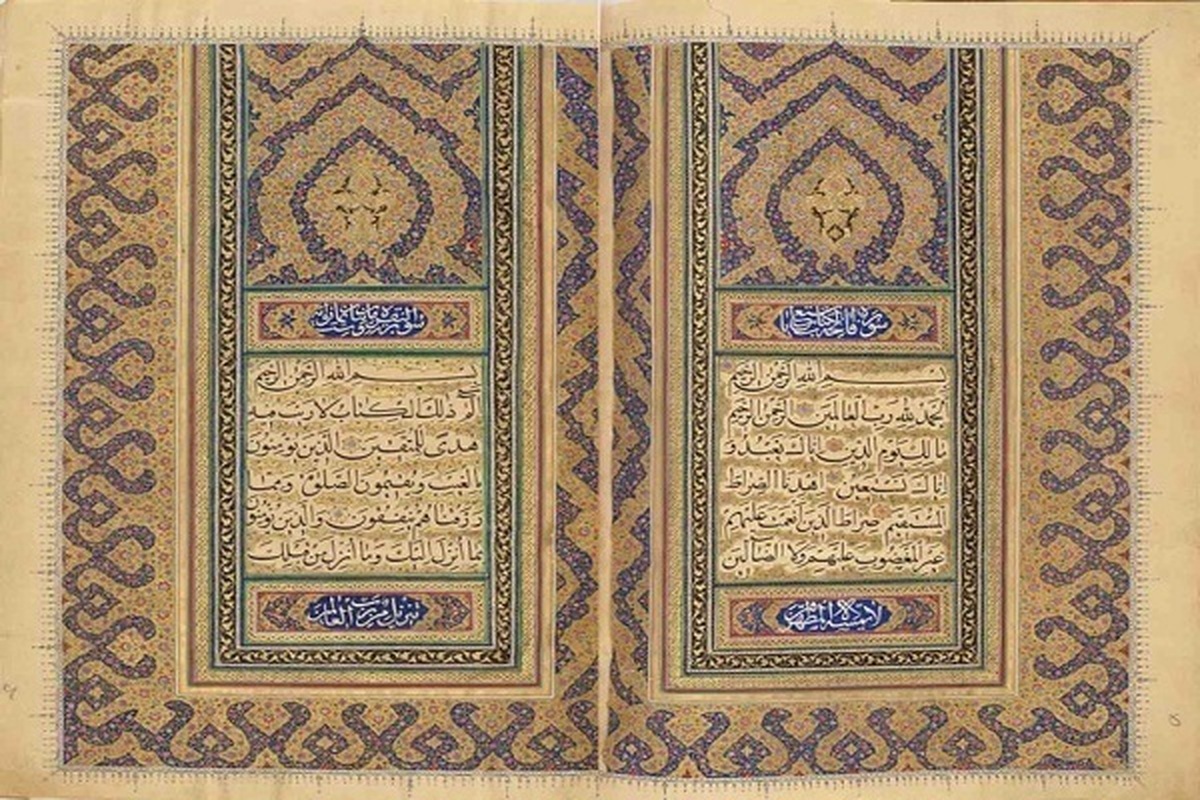 سورة فاتحة الكتاب
بِسْمِ اللهِ الرَّحْمٰنِ الرَّحِيمِ
اَلْحَمْدُ لِلّٰهِ رَبِّ الْعَالَمِينَ الرَّحْمٰنِ الرَّحِيمِ
مَالِكِ يَوْمِ الدِّينِ اِيَّاكَ نَعْبُدُ وَ
اِيَّاكَ نَسْتَعِينُ اِهْدِنَا الصِّرَاطَ
الْمُسْتَقِيمَ صِرَاطَ الَّذِينَ اَنْعَمْتَ عَلَيْهِمْ
غَيْرِ الْمَغْضُوبِ عَلَيْهِمْ وَلَا الضَّالِّينَ
لا يمسه الا المطهرون
سورة البقرة
بِسْمِ اللهِ الرَّحْمٰنِ الرَّحِيمِ
الٓمٓ ذٰلِكَ الْكِتَابُ لَا رَيْبَ فِيهِ
هُدًى لِلْمُتَّقِينَ الَّذِينَ يُؤْمِنُونَ
بِالْغَيْبِ وَيُقِيمُونَ الصَّلٰوةَ وَمِمَّا
رَزَقْنَاهُمْ يُنْفِقُونَ وَالَّذِينَ يُؤْمِنُونَ
بِمَا اُنْزِلَ اِلَيْكَ وَمَا اُنْزِلَ مِنْ قَبْلِكَ
تنزيل من رب العالمين